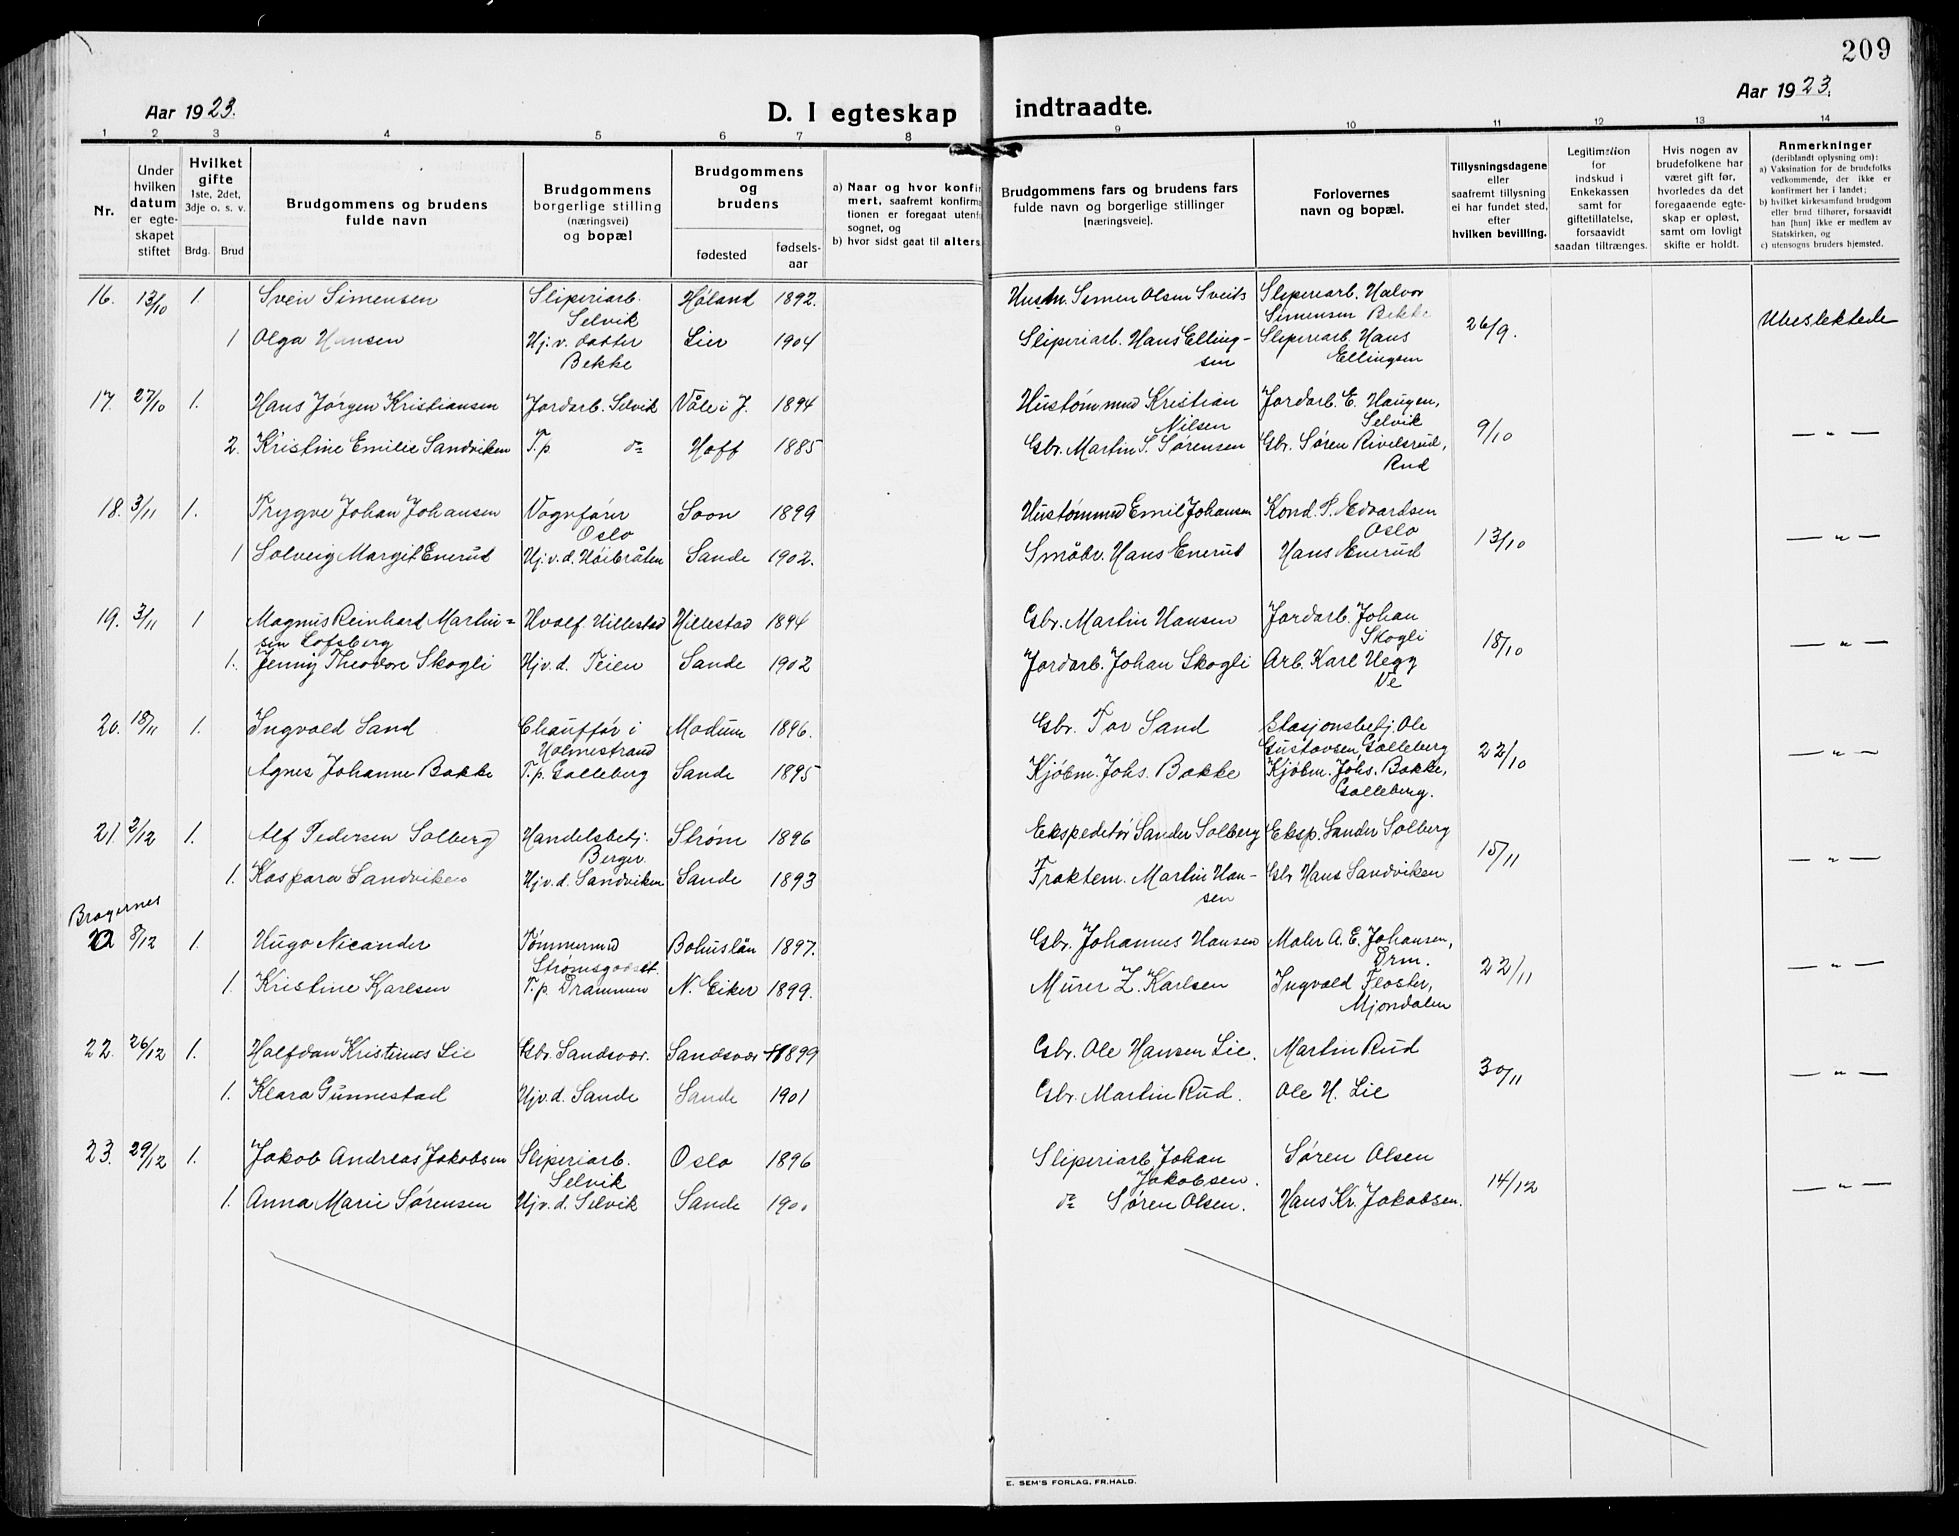 209
Aar 1923.
D. I egteskap indtraadte.
Aar 1923.
1 2 3 4 5 6 7 8 9 10 11 12 13 14
Nr.
Under hvilken datum er egteskapet stiftet
Hvilket gifte
1ste, 2det, 3dje o. s. v.
Brdg. Brud
Brudgommens og brudens fulde navn
Brudgommens borgerlige stilling (næringsvei) og bopæl
Brudgommens og brudens
fødested
fødselsaar
a) Naar og hvor konfir
mert, saafremt konfirma
tionen er foregaat utenfo
sognet, og
b) hvor sidst gaat til alters.
Brudgommens fars og brudens fars
fulde navn og borgerlige stillinger
[næringsveie].
Forlovernes
navn og bopæl.
Tillysningsdagene
eller
saafremt tillysning
ei har fundet sted,
efter
hvilken bevilling.
Legitimation
for
indskud i
Enkekassen
samt for
giftetillatelse,
forsaavidt
saadan tiltrænges.
Hvis nogen av
brudefolkene har
været gift før,
hvorledes da det
foregaaende egte-
skap er opløst,
samt om lovligt
skifte er holdt.
Anmerkninger
(deriblandt oplysning om):
a) Vaksination for de brudefolks
vedkommende, der ikke er
konfirmert her i landet;
b) hvilket kirkesamfund brudgom
eller brud tilhører, forsaavidt
han [hun] ikke er medlem av
Statskirken, og
c) utensogns bruders hjemsted.
16. 13/10 1. Svein Simensen Sliperiarb. Selvik Høland 1892. Husm. Simen Olsen Sveits Sliperiarb. Halvor Simensen Bekke 26/9. Ubeslektede
1 Olga Hansen Hj. v. datter Bekke Lier 1904 Sliperiarb. Hans Ellingsen Sliperiarb. Hans Ellingsen
17. 27/10 1. Hans Jørgen Kristiansen Jordarb. Selvik Våle i J. 1894 Hustømmmd Kristian Nilsen Jordarb. E. Haugen, Selvik 9/10 — " —
2. Kristine Emilie Sandviken T.p do Hoff 1885 Gbr. Martin S. Sørensen Gbr. Søren Rivelsrud, Rud
18. 3/11 1. Trygve Johan Johansen Vognfører Oslo Soon 1899 Hustømmd Emil Johansen Kond. P. Edvardsen Oslo 13/10 — " —
1 Solveig Margit Enerud Hj. v. d. Høibråten Sande 1902. Småbr. Hans Enerud Hans Enerud
19. 3/11 1 Magnus Reinhard Martinsen Lofsberg Hvalf. Hillestad Hillestad 1894 Gbr. Martin Hansen Jordarb. Johan Skogli 18/10 — " —
1. Jenny Theodore Skogli Hjv. d. Teien Sande 1902 Jordarb. Johan Skogli Arb. Karl Hegg Ve
20. 18/11 1. Ingvald Sand Chauffør i Holmestrand Modum 1896. Gbr. Tor Sand Stasjonsbetj. Ole Gustavsen Galleberg 22/10 — " —
Agnes Johanne Bakke T.p. Galleberg Sande 1895 Kjøbm. Johs. Bakke Kjøbm. Johs. Bakke, Galleberg.
21. 2/12 1. Alf Pedersen Solberg Handelsbetj. Berger Strøm 1896 Ekspeditør Sander Solberg Eksp. Sander Solberg 15/11 — " —
1. Kaspara Sandviken Hjv. d. Sandviken Sande 1893 Fraktem. Martin Hansen Gbr Hans Sandviken
Bragernes
8/12 1. Hugo Nicander Tømmermd Strømsgodset. Bohuslän 1897. Gbr. Johannes Hansen Maler A. E. Johansen, Drm. 22/11 — " —
1. Kristine Karlsen T.p. Drammen N. Eiker 1899. Murer Z. Karlsen Ingvald Floster, Mjøndalen
22. 26/12 1. Halfdan Kristines Lie Gbr. Sandsvær. Sandsvær 1899 Gbr. Ole Hansen Lie. Martin Rud 30/11 — " —
1. Klara Gunnestad Hjv. d. Sande Sande 1901 Gbr. Martin Rud. Ole H. Lie
23. 29/12 1. Jakob Andreas Jakobsen Sliperiarb. Selvik Oslo 1896 Sliperiarb Johan Jakobsen. Søren Olsen 14/12 — " —
1. Anna Marie Sørensen Hjv. d. Selvik Sande 1900 do Søren Olsen. Hans Kr. Jakobsen.
E. SEM'S FORLAG, FR.HALD.